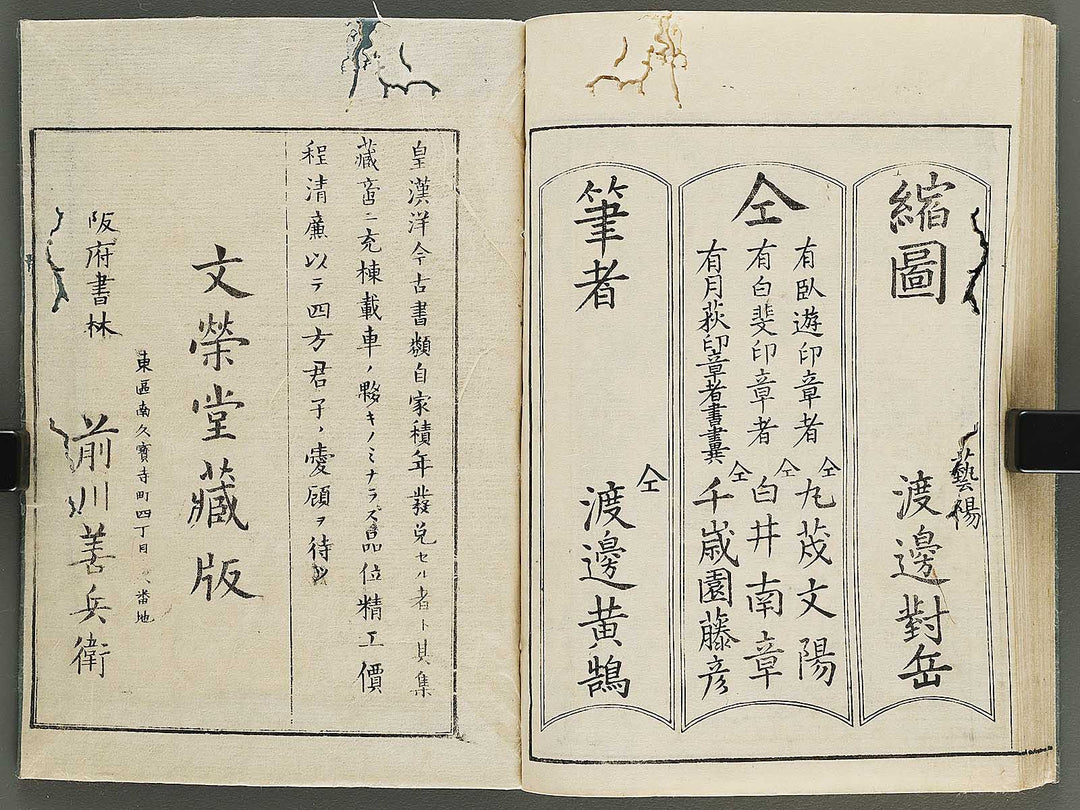 縮圖
藝陽
渡邊對岳
仝
有臥遊印章者
仝
九茂文陽
有白斐印章者
仝
白井南章
有月荻印章者書畫與
仝
千歳園藤彦
筆者
仝
渡邊黃鵠
皇漢洋今古書類自家積年發兌セル者ト其集
藏啚ニ充棟載車ノ夥キノミナラズ品位精工價
程清廉以テ四方君子ノ愛顧ヲ待ツ
文榮堂藏版
東區南久寶寺町四丁目 番地
阪府書林
前川善兵衛